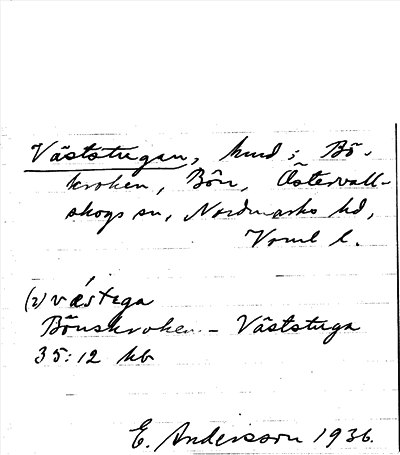 Väststugan, hmd i Bö-
kroken, Bön, Östervall-
skogs sn, Nordmarks hd,
Vrml l.
(2) västega
Bönskroken - Väststuga
35:12 hb
E. Andersson 1936.